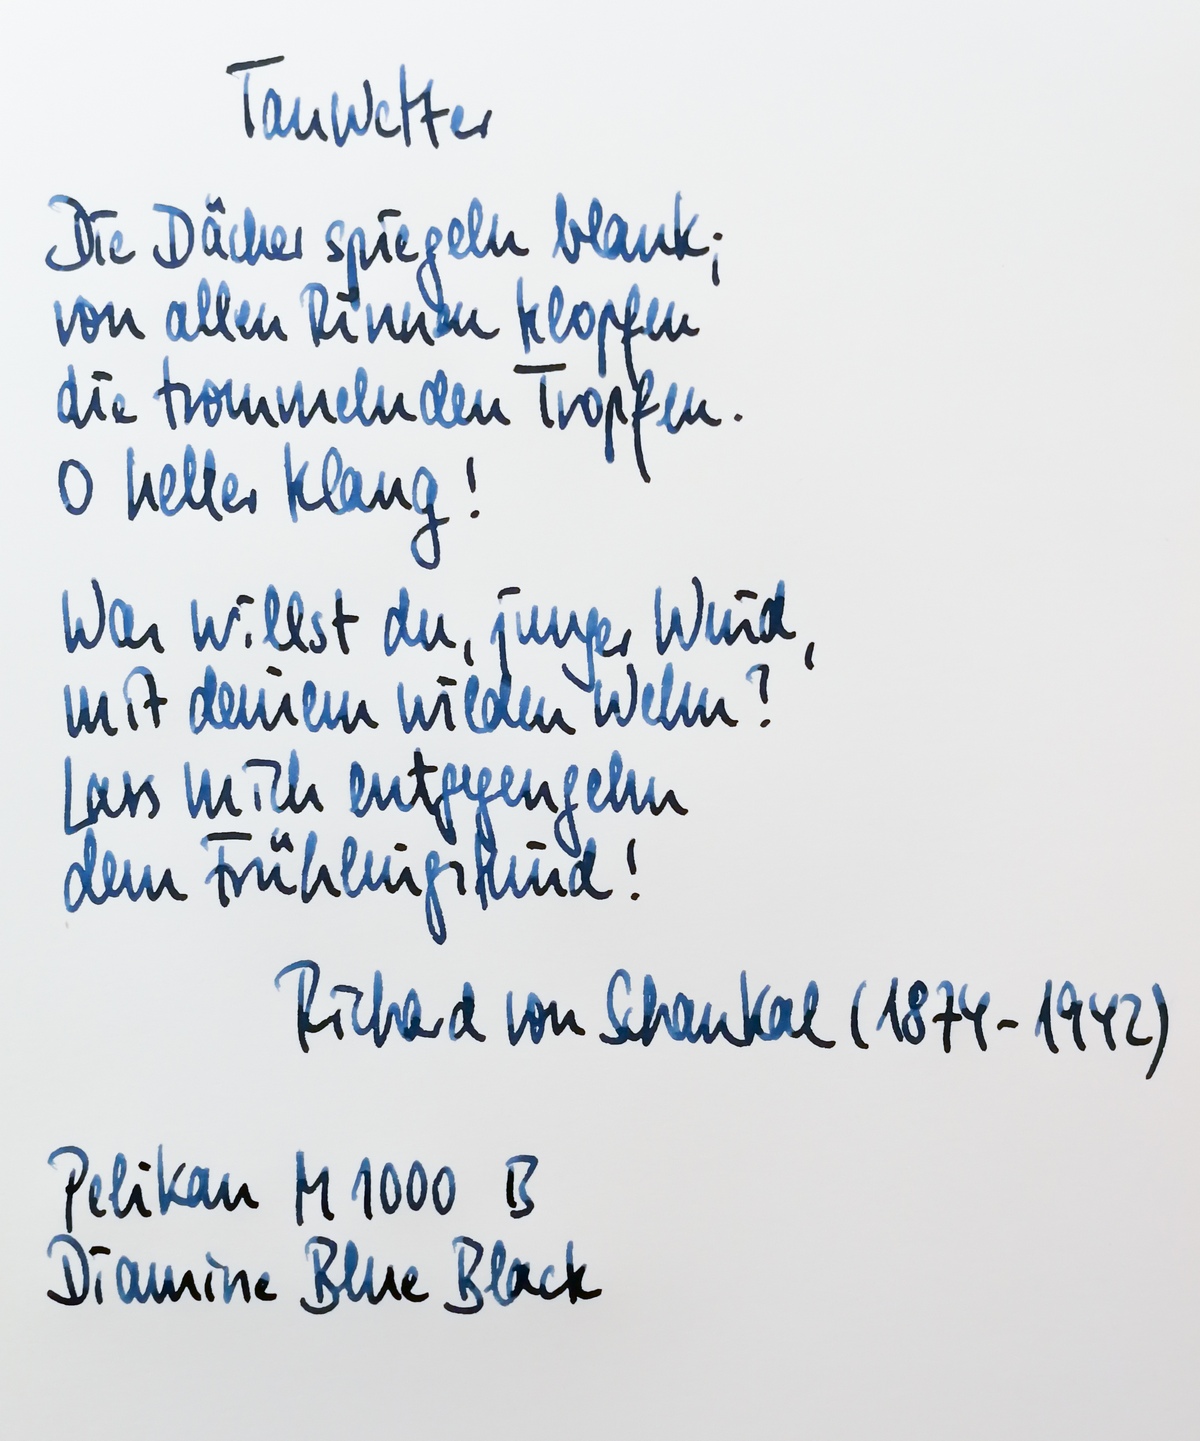 Tauwetter
Die Dächer spiegeln blank;
von allen Rinnen klopfen
die trommelnden Tropfen.
O heller Klang!
Was willst du, junger Wind,
mit deinem wilden Wehn?
Lass mich entgegengehn
dem Frühlingskind!
Richard von Schaukal (1874-1942)
Pelikan M 1000 B
Diamine Blue Black